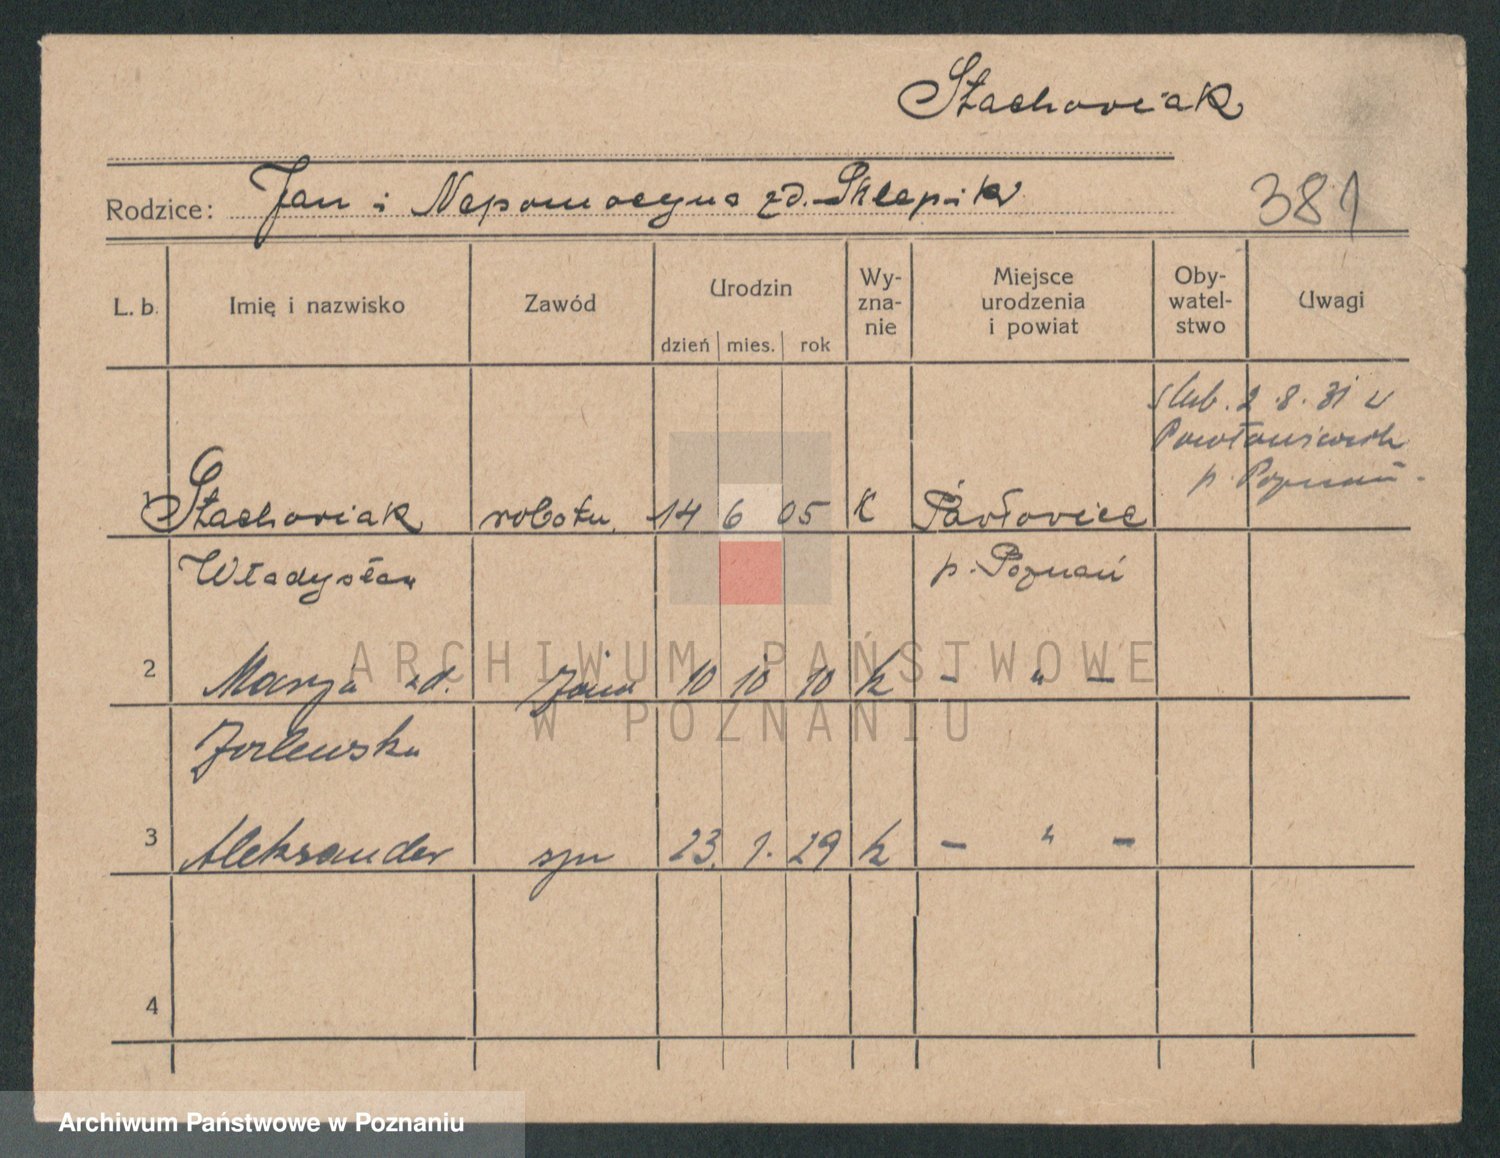 Stachowiak
Rodzice: Jan i Nepomocyna zd. Sklepik
381
L. b. Imię i nazwisko Zawód Urodzin dzień mies. rok Wy-zna-nie Miejsce urodzenia i powiat Oby-watel-stwo Uwagi
ślub. 2.8.31 w
p. Poznań.
1 Stachowiak robotn. 14 6 05 K Pawłowice
Władysław p. Poznań
2 Marja zd. żona 10 10 10 k - " -
3 Aleksander syn 23. 1. 29 k - " -
4
ARCHIWUM PAŃSTWOWE
W POZNANIU
Archiwum Państwowe w Poznaniu